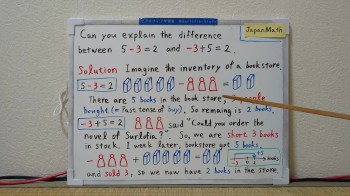 Can you explain the difference
JapanMath
between 5-3=2 and -3+5=2.
Solution Imagine the inventory of a bookstore.
5-3=2 - = 
There are 5 books in the book store, 3 people
bought (= Past tense of buy). So remaining is 2 books.
-3+5=2 said "Could you order the
novel of Surlotia?" So, we are short 3 books
in stock. 1 week later, bookstore got 5 books,
- + =
+5
-3 0 2 books
and sold 3, so we now have 2 books in the store.